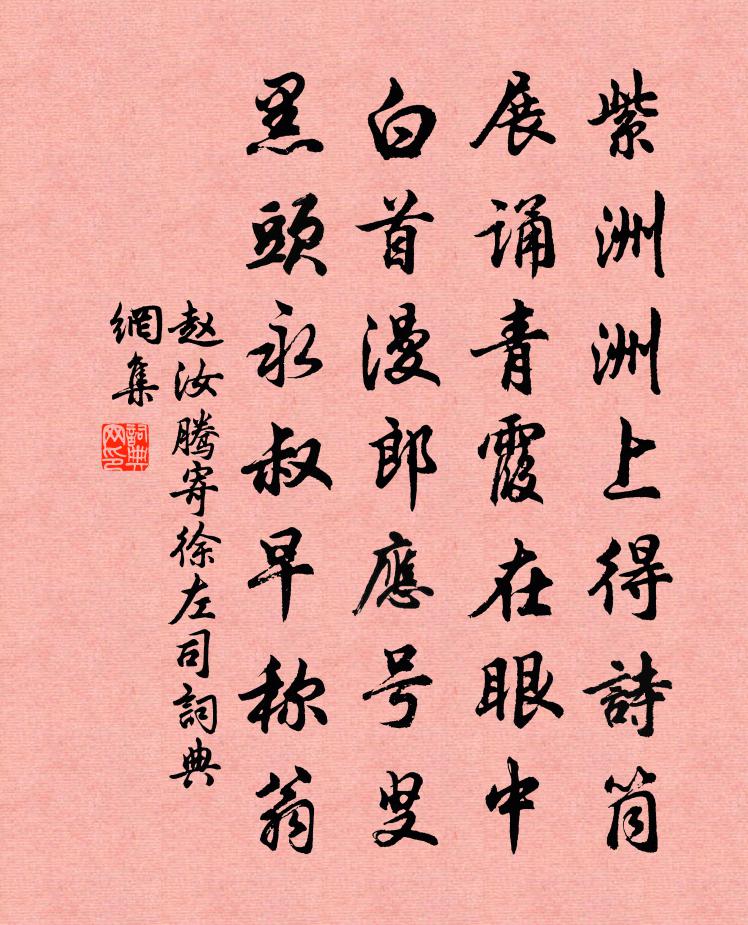 紫洲洲上得詩筒
展誦青霞在眼中
白首漫郎應号叟
黑頭永叔早称翁
赵汝騰寄徐左司詞典
網集
詞典
网印